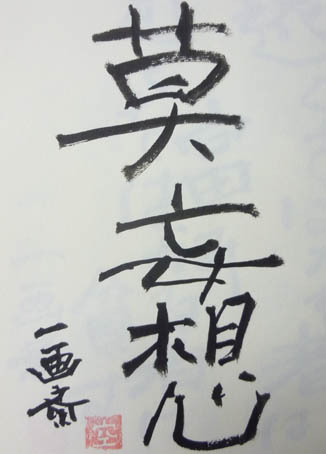 莫妄想
一画斎